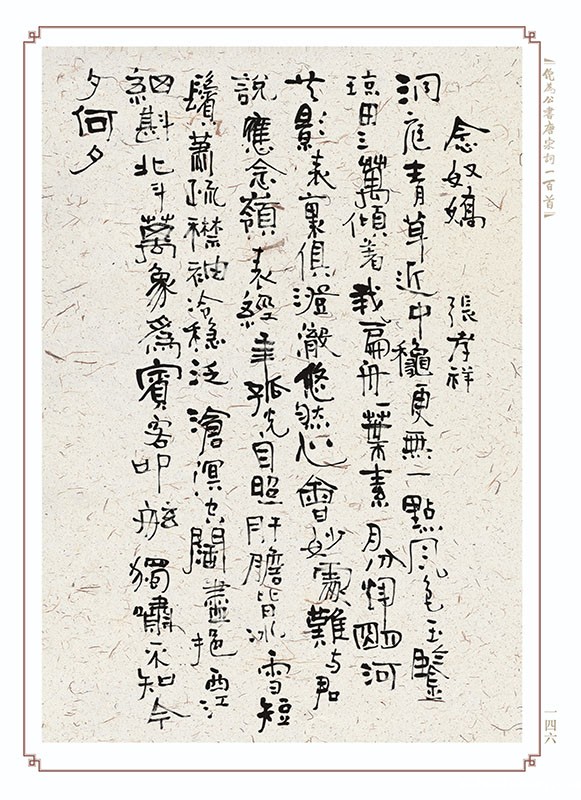 倪為公書唐宋詞一百首
念奴嬌 張孝祥
洞庭青草近中龝更無一點風色玉鑒
琼田三萬傾著我扁舟一葉素月分輝朙河
共影表裏俱澄澈悠然心會妙處難与君
說應念嶺表經年孤光自照肝膽皆冰雪短
鬢蕭疏襟袖冷穩泛滄溟空闊盡挹西江
細斟北斗萬象爲賓客叩舷獨嘯不知今
夕何夕
一四六